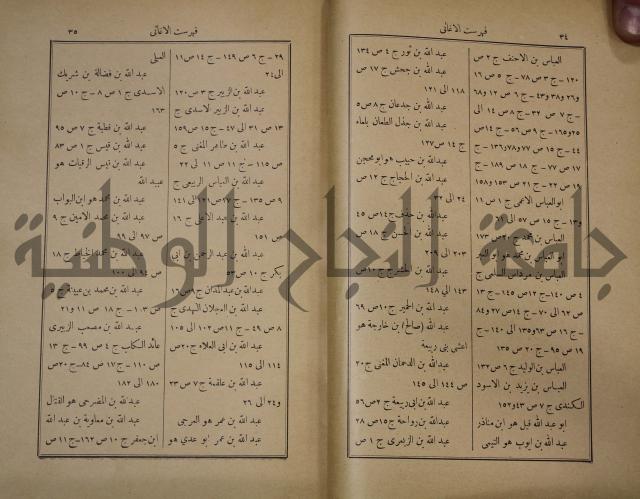 ٣٤
فهرست الاغانى
العباس بن الاحنف ج ٢ ص
١٢٠ - ج ٣ ص ٧٨ - ج ٥ ص ١٦
و٢٦ و٣٨ و٤٣ - ج ٦ ص ١٢ و٦٨
- ج ٧ ص ٣٢ - ج ٨ ص ١٤ الى
٢٥ و١٦٥ - ج ٩ ص ٥٦ - ج ١٤ ص
٤٤ - ج ١٥ ص ٧٧ و٧٨ و١٣٩ - ج
١٧ ص ٧٧ - ج ١٨ ص ١٨٩ - ج
١٩ ص ٢٢ - ج ٢١ ص ١٥٣ و١٥٨
ابو العباس الاعمى ج ١ ص ١١
و١٣ - ج ١٥ ص ٥٧ الى ٦١
العباس بن محمد ج ٢٠ ص ١٧٣
ابو العباس بن محمد هو ابو العبر
العباس بن مرداس السلمى ج
٤ ص ١٤٠ - ج ١٢ ص ١٤٥ - ج ١٣
ص ٦٢ الى ٧٠ - ج ١٤ ص ٢٧ و٨٤
- ج ١٦ ص ٦٣ و١٣٥ الى ١٤٠ - ج
١٩ ص ٩٥ - ج ٢٠ ص ١٣٥
العباس بن الوليد ج ٦ ص ١٣٢
العباس بن يزيد بن الاسود
الكندى ج ٧ ص ٤٣ و١٥٢
ابو عبد الله قيل هو ابن مناذر
عبد الله بن ايوب هو التيمى
عبد الله بن ثور ج ٤ ص ١٣٤
عبد الله بن جحش ج ١٧ ص
١١٨ الى ١٢١
عبد الله بن جدعان ج ٨ ص ٥
عبد الله بن جذل الطعان بلماء
ج ١٤ ص ١٢٧
عبد الله بن حبيب هو ابو محجن
عبد الله بن الحجاج ج ١٢ ص
٢٤ الى ٣٢
عبد الله بن ج ١٤ ص ٤٥
عبد الله بن الحسن ج ١٨ ص
٢٠٣ الى ٢٠٩
عبد الله بن الحشرج ج ١٠ ص
١٤٣ الى ١٤٨
عبد الله بن الحمير ج ١٠ ص ٦٩
عبد الله (صالح) بن خارجة هو
اعشى بنى ربيعة
عبد الله بن الدحمان المغنى ج ٢٠
ص ١٤٤ الى ١٤٥
عبد الله بن ابى ربيعة ج ٢ ص ٥٦
عبد الله بن رواحة ج ١٥ ص ٢٨
عبد الله بن الزبعرى ج ١ ص
فهرست الاغانى
٣٥
٢٩ - ج ٦ ص ١٤٩ - ج ١٤ ص ١١
الى ٢٤
عبد الله بن الزبير ج ٣ ص ١٢٠
عبد الله بن الزبير الاسدى ج
١٣ ص ٣١ الى ٤٧ - ج ١٥ ص ١٥٩
عبد الله بن طاهر المغنى ج ٥
ص ١١٥ - ج ١١ ص ١١ الى ٢٢
عبد الله بن العباس الربيعى ج
٩ ص ١٣٥ - ج ١٧ ص ١٢١ الى ١٤١
عبد الله بن عبد الاعلى ج ١٦
ص ١٥١
عبد الله بن عبد الرحمن بن ابى
بكر ج ١٠ ص ٥٣
عبد الله بن عبد المدان ج ٩ ص ١٦
عبد الله بن العجلان النهدى ج
٨ ص ٤٩ - ج ١١ ص ١٠٢ الى ١٠٥
عبد الله بن ابى العلاء ج ٢٠ ص
١١٤ الى ١١٥
عبد الله بن علقمة ج ٧ ص ٢٣
و٢٤ الى ٢٦
عبد الله بن عمر هو العرجى
عبد الله بن عمر ابو عدى هو
العبلى
عبد الله بن فضالة بن شريك
الاسدى ج ١ ص ٨ - ج ١٠ ص
١٦٣
عبد الله بن قطبة ج ٧ ص ٩٥
عبد الله بن قيس ج ١ ص ٨٣
عبد الله بن قيس الرقيات هو
عبيد الله
عبد الله بن محمد هو ابن البواب
عبد الله بن محمد الامين ج ٩
ص ٩٧ الى ٩٩
عبد الله بن محمد الخياط ج ١٨
ص ٩٤ الى ١٠٠
عبد الله بن محمد بن عيينة ج ٥
ص ١٠٣ - ج ١٨ ص ١١ و٢١
عبد الله بن مصعب الزبيرى
عائد الكلب ج ٤ ص ٩٩ - ج ١٣
ص ١١٠ - ج ١٧ ص ٨٤ - ج ٢٠ ص
١٨٠ الى ١٨٢
عبد الله بن المضرحى هو القتال
عبد الله بن معاوية بن عبد الله
ابن جعفر ج ١٠ ص ١٦٢ - ج ١١ ص
جامعة النجاح الوطنية